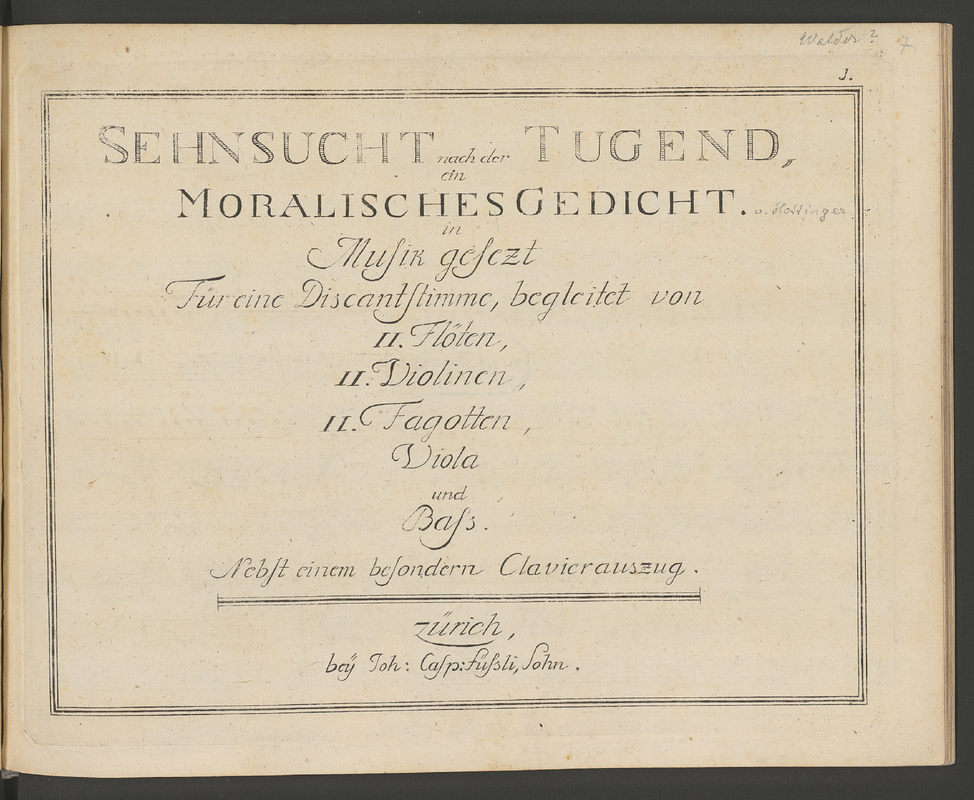 Walder? 7
1.
SEHNSUCHT nach der TUGEND,
ein
MORALISCHES GEDICHT. v. Hottinger
in
Muſik geſezt
Für eine Discantſtimme, begleitet von
II. Flöten,
II. Violinen,
II. Fagotten,
Viola
und
Baſs.
Nebſt einem beſondern Clavierauszug.
Zürich,
beÿ Joh: Caſp: Füſsli, Sohn.